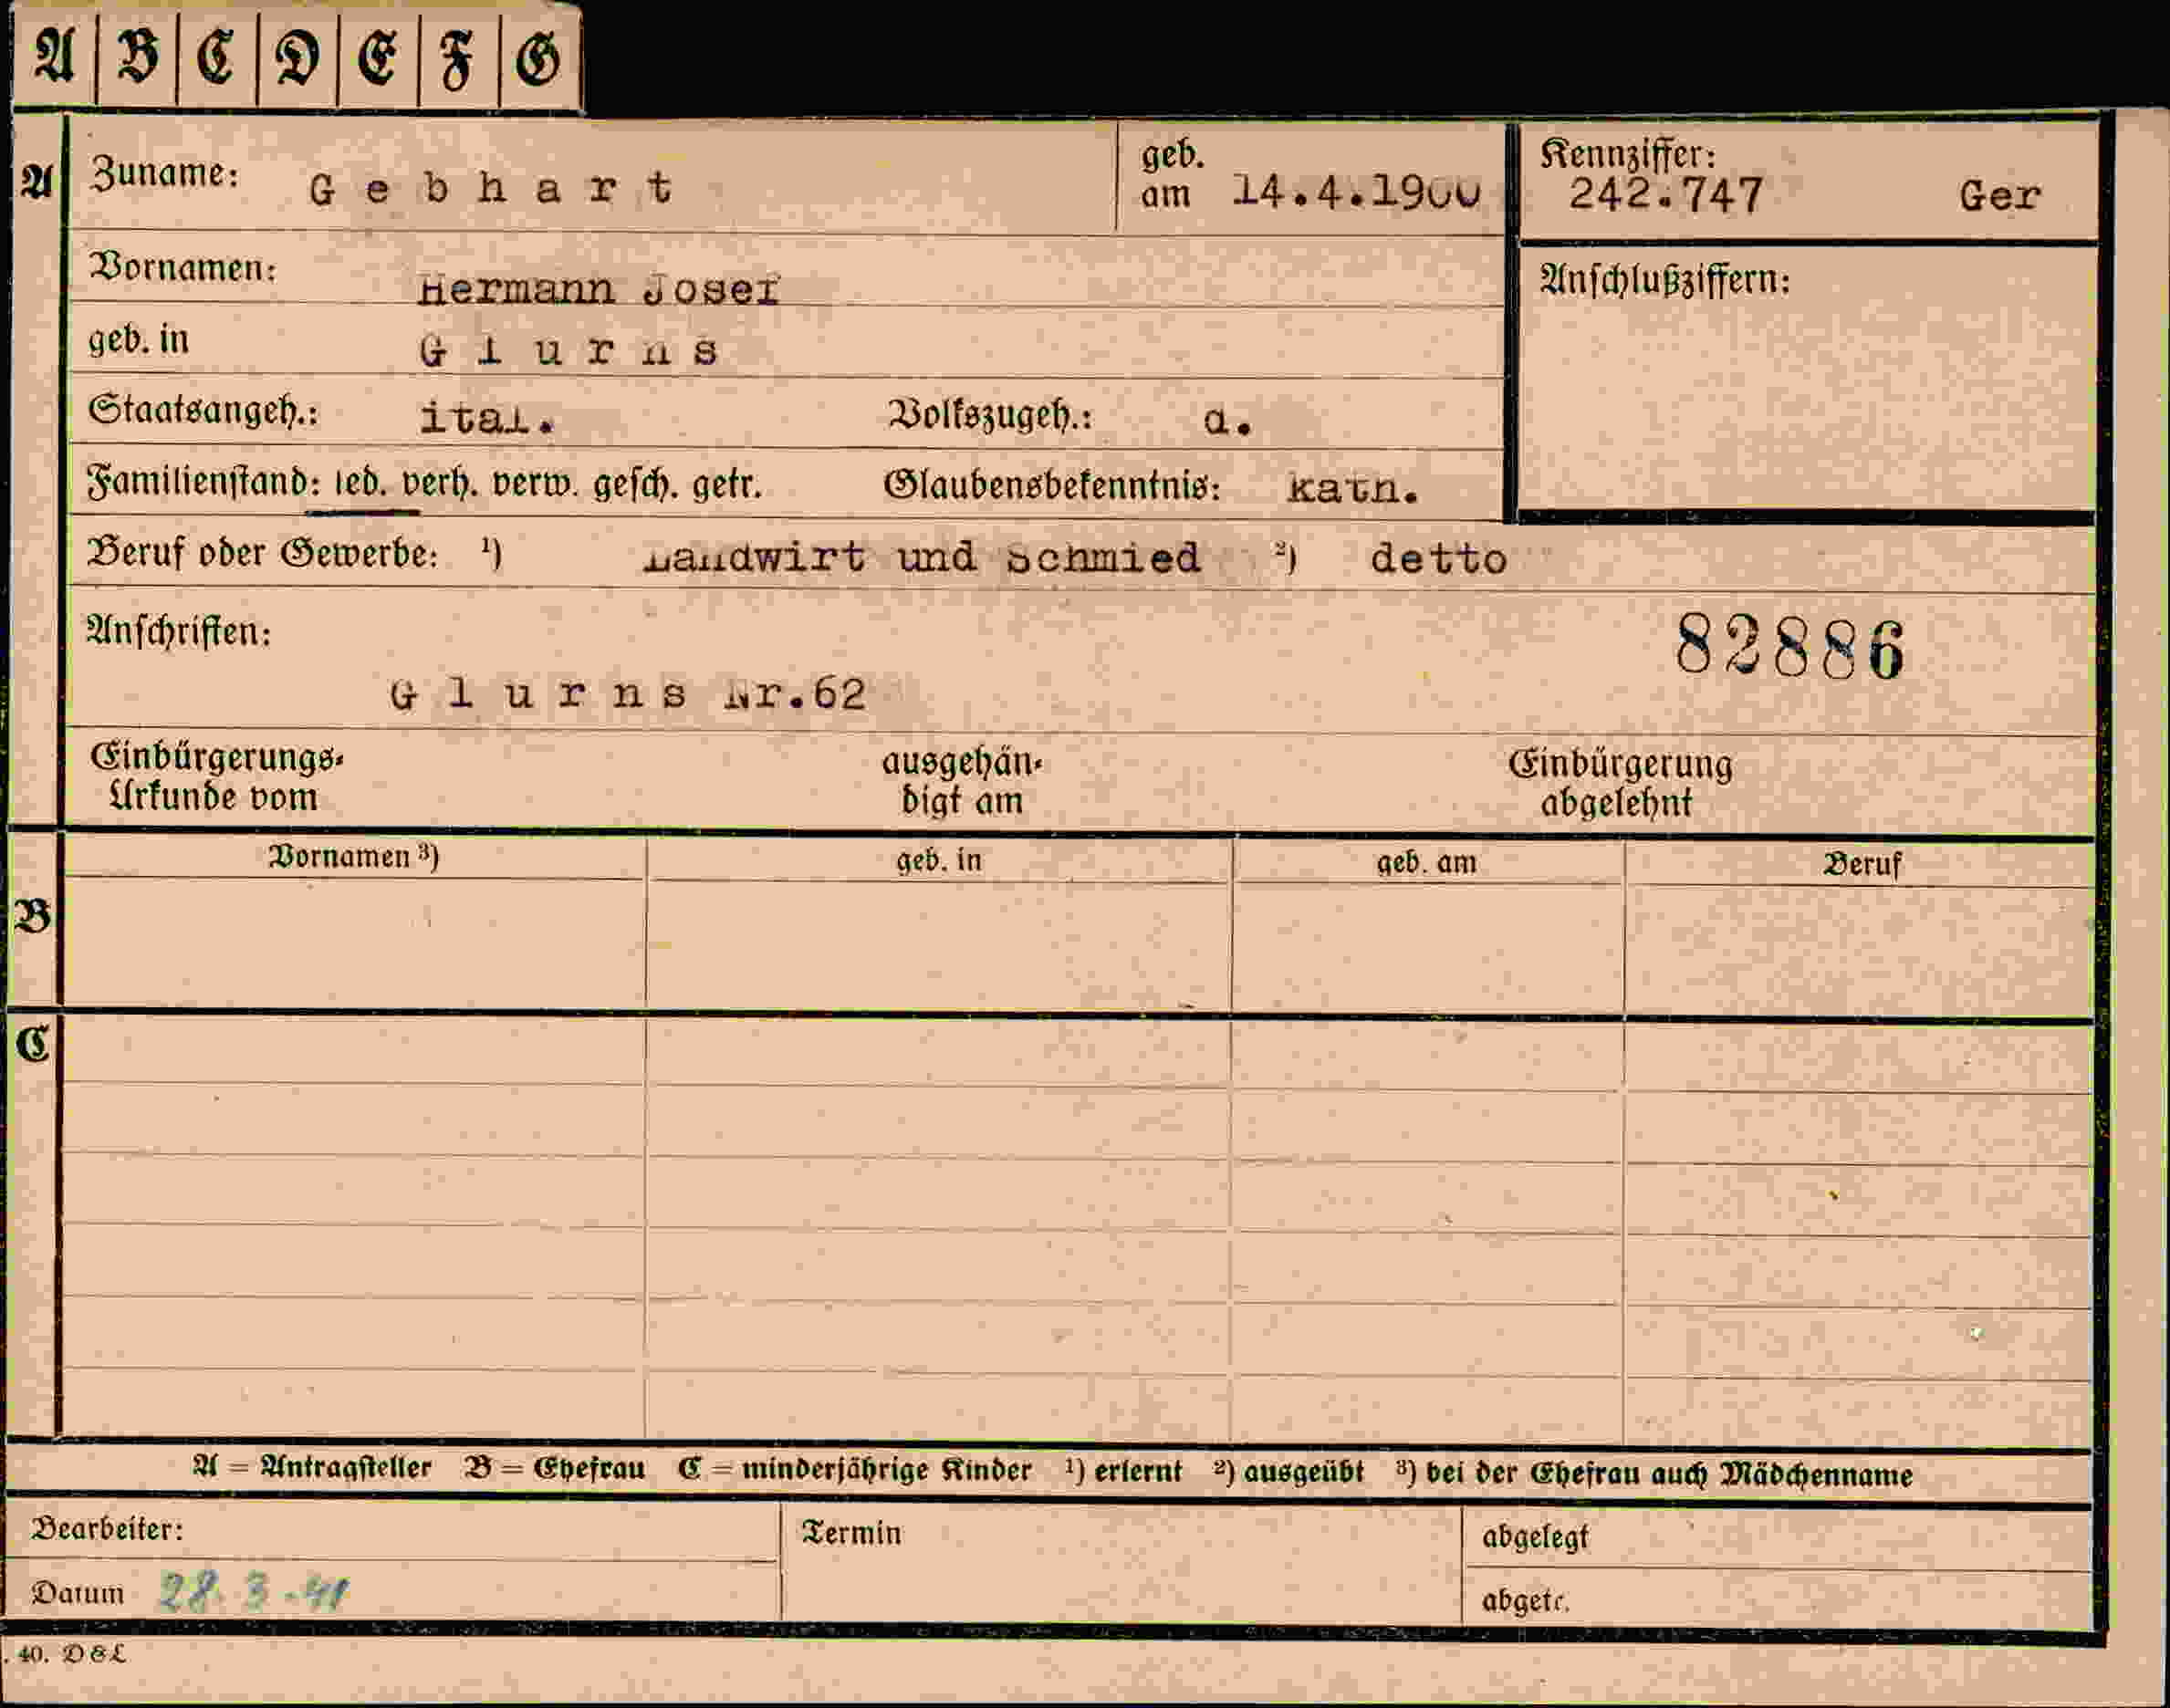 A B C D E F G
A Zuname: Gebhart geb. am 14.4.1900 Kennziffer: 242.747 Ger
Vornamen: Hermann Josef Anschlußziffern:
geb. in Glurns
Staatsangeh.: ital. Volkszugeh.: d.
Familienstand: led. verh. verw. gesch. getr. Glaubensbekenntnis: kath.
Beruf oder Gewerbe: ¹) Landwirt und Schmied ²) detto
Anschriften: 82886
Glurns Nr.62
Einbürgerungs-Urkunde vom ausgehändigt am Einbürgerung abgelehnt
Vornamen ³) geb. in geb. am Beruf
B
C
A = Antragsteller B = Ehefrau C = minderjährige Kinder ¹) erlernt ²) ausgeübt ³) bei der Ehefrau auch Mädchenname
Bearbeiter: Termin abgelegt
Datum 28.3.-41 abgetr.
. 40. D & L